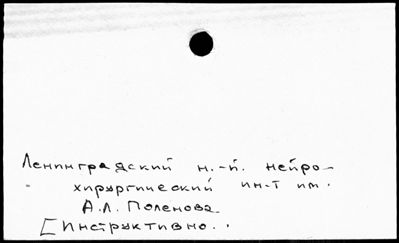 Ленинградский н.-й. нейро-
хирургический ин-т им.
А.Л. Поленова.
[Инструктивно..